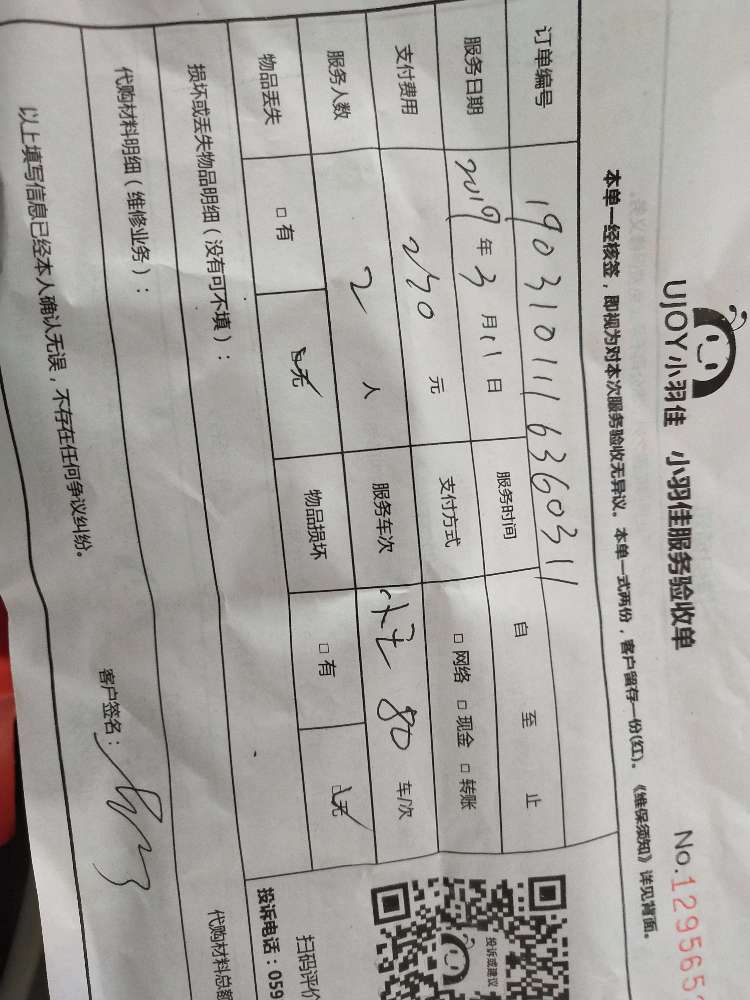 UJOY小羽佳 小羽佳服务验收单 No.129565
本单一经核签，即视为对本次服务验收无异议。本单一式两份，客户留存一份(红)。《维保须知》详见背面。
订单编号 19031011163603 11
服务日期 2019年3月11日 服务时间 自 至 止
支付费用 元 支付方式 □网络 □现金 □转账
服务人数 2人 服务车次 80 车/次
物品丢失 □有 □无 物品损坏 □有 □无
损坏或丢失物品明细（没有可不填）：
代购材料明细（维修业务）： 代购材料总额
以上填写信息已经本人确认无误，不存在任何争议纠纷。 客户签名：
投诉或建议
扫码评价
投诉电话：059